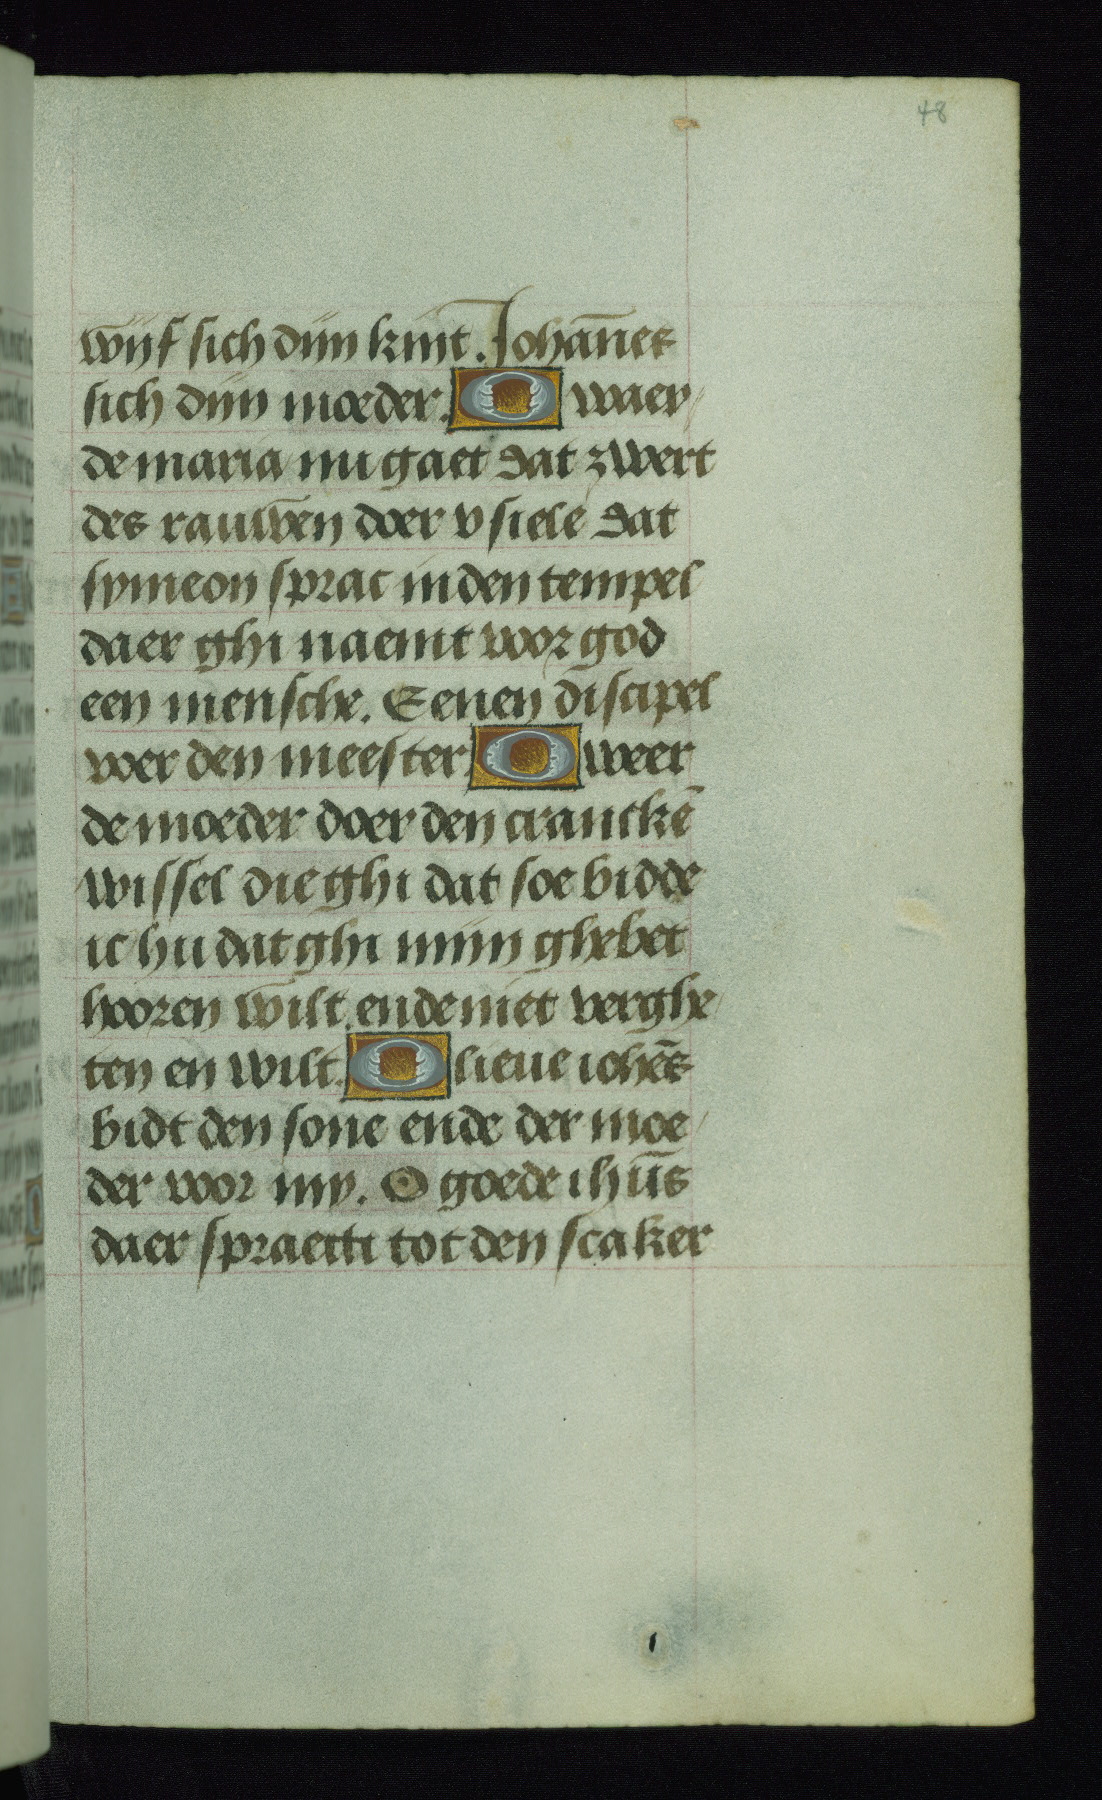 48
wijf sich dijn kint. Johan̄es
sich dijn moeder. O waer
de maria nu gaet dat zwert
des rauwen doer v siele dat
symeon sprac inden tempel
daer ghi naemt voor god
een mensche. Eenen discipel
voer den meester O weer
de moeder doer den cranckē
wissel die ghi dat soe bidde
ic hu dat ghi mijn ghebet
hooren wilt. ende niet verghe
ten en wilt. O lieue iohēs
bidt den sone ende der moe
der voor my. O goede ihūs
daer spraecti tot den scaker